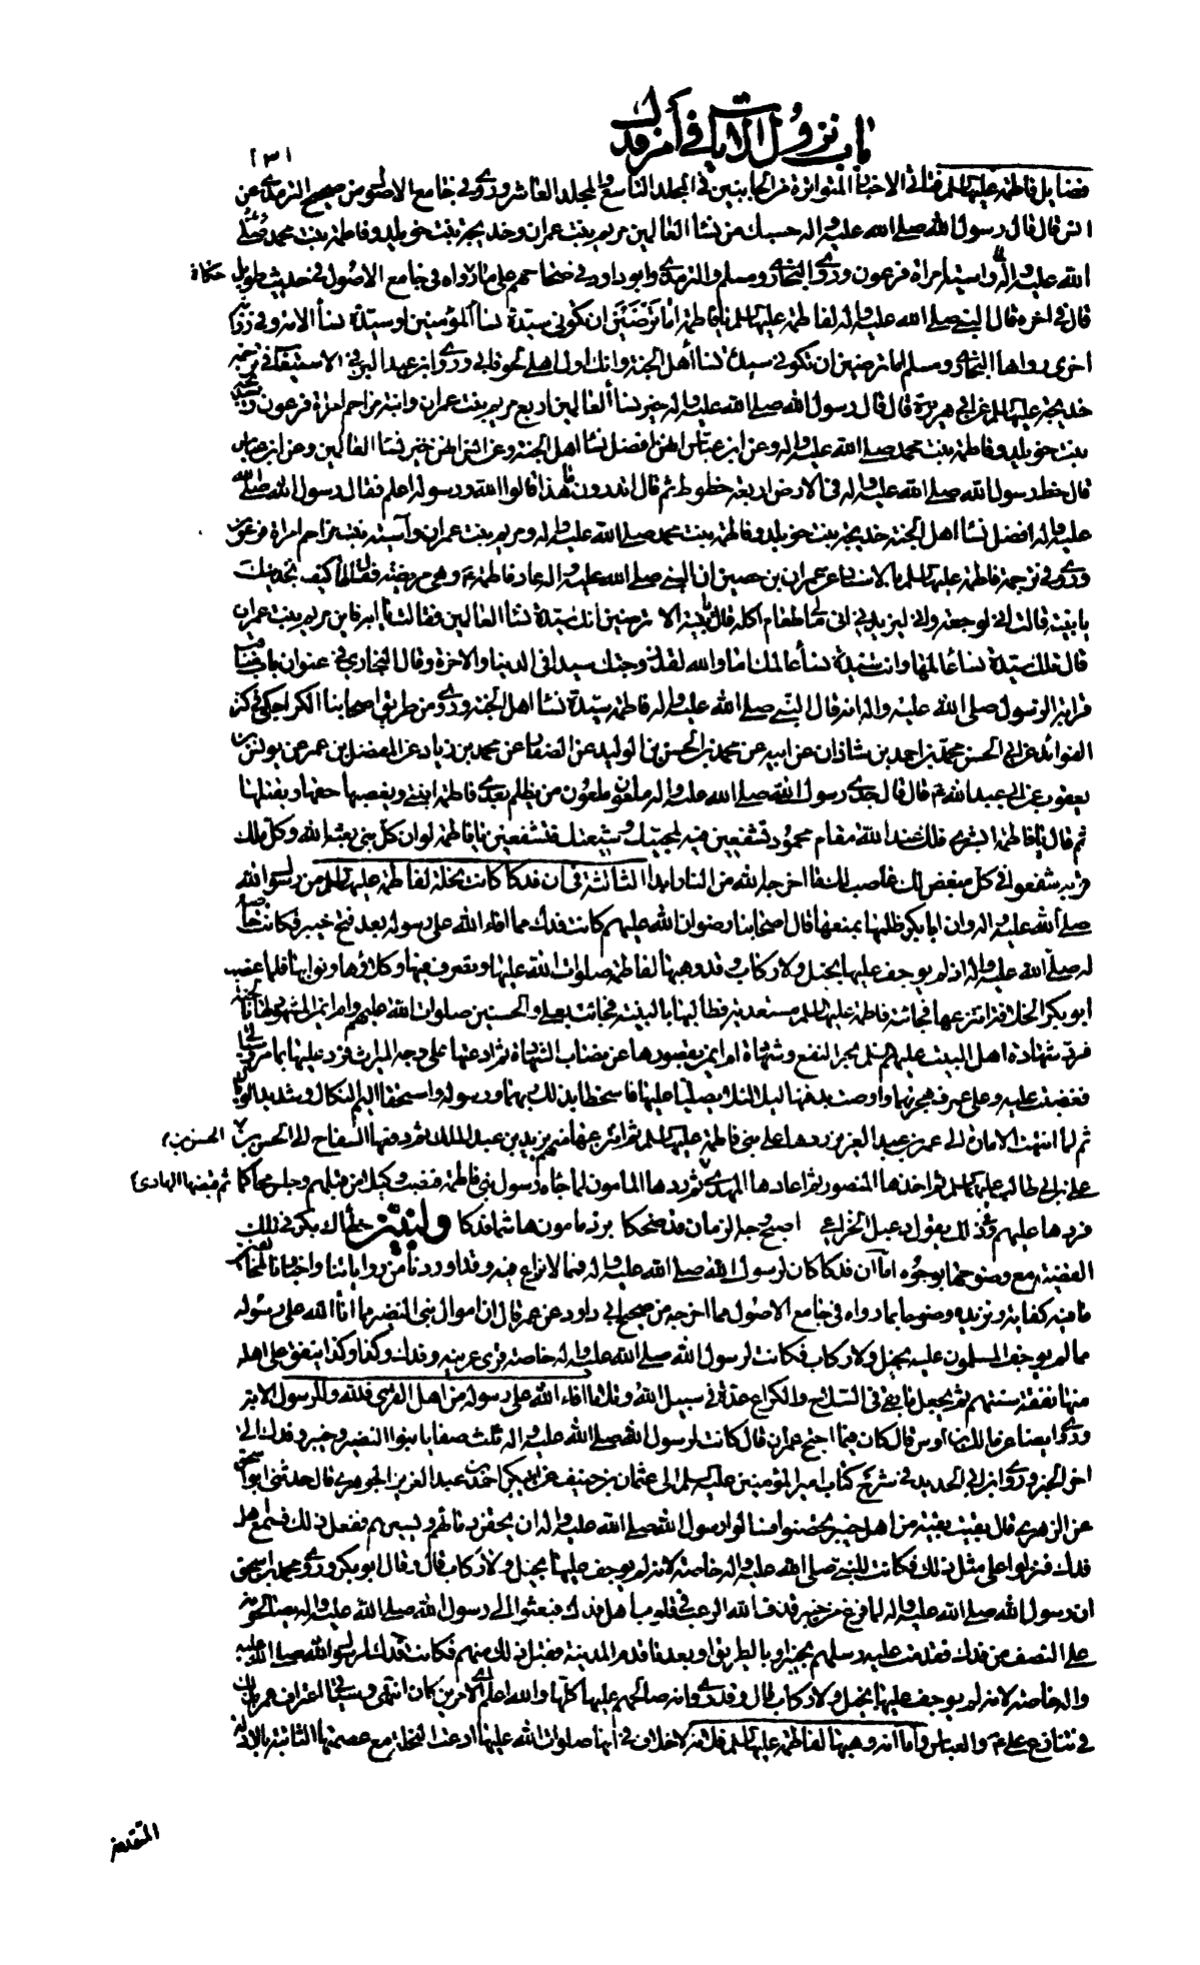 باب نزول الايات في أمر فدك
١٠٣
فضايل فاطمة عليها السلم فقال في الاخبار المتواترة من الجانبين في المجلد التاسع والمجلد العاشر وروى في جامع الاصول من صحيح الترمذي عن
انس قال قال رسول الله صلى الله عليه واله حسبك من نسآء العالمين مريم بنت عمران وخديجة بنت خويلد وفاطمة بنت محمد صلى
الله عليه واله واسية امرأة فرعون وروى البخارى ومسلم والترمذي وابو داود في صحاحهم على ما رواه في جامع الاصول في حديث طويل حكاة
قال في اخره قال النبي صلى الله عليه واله لفاطمة عليها السلم يا فاطمة اما ترضين ان تكوني سيدة نسآء المؤمنين او سيدة نسآء الامة وفي رواية
اخرى رواها البخارى ومسلم اما ترضين ان تكوني سيدة نسآء أهل الجنة وانك اول اهلي لحوقا بي وروى ابن عبد البر في الاستيعاب في ترجمة
خديجة عليها السلم عن ابي هريرة قال قال رسول الله صلى الله عليه واله خير نسآء العالمين اربع مريم بنت عمران وابنة مزاحم امرأة فرعون وخديجة
بنت خويلد وفاطمة بنت محمد صلى الله عليه واله وعن ابن عباس انهن افضل نسآء اهل الجنة وعن انس انهن خير نسآء العالمين وعن ابن عباس
قال خط رسول الله صلى الله عليه واله في الارض اربعة خطوط ثم قال اتدرون ما هذا قالوا الله ورسوله اعلم فقال رسول الله صلى الله
عليه واله افضل نسآء اهل الجنة خديجة بنت خويلد وفاطمة بنت محمد صلى الله عليه واله ومريم بنت عمران وآسية بنت مزاحم امرأة فرعون
وروى في ترجمة فاطمة عليها السلم بالاسناد عن عمران بن حصين ان النبي صلى الله عليه واله عاد فاطمة ع وهي مريضة فقال لها كيف تجدينك
يا بنية قالت اني لوجعة واني ليزيدني اني ما لي طعام اكله قال يا بنية الا ترضين انك سيدة نسآء العالمين فقالت يا ابه فاين مريم بنت عمران
قال تلك سيدة نسآء عالمها وانت سيدة نسآء عالمك اما والله لقد زوجتك سيدا في الدنيا والاخرة وقال البخاري في عنوان باب مناقب
قرابة الرسول صلى الله عليه واله انه قال النبي صلى الله عليه واله فاطمة سيدة نسآء اهل الجنة وروى من طريق اصحابنا الكراجكي في كنز
الفوائد عن ابي الحسن محمد بن احمد بن شاذان عن ابيه عن محمد بن الحسن بن الوليد عن الصفار عن محمد بن زياد عن المفضل بن عمر عن يونس بن
يعقوب عن ابي عبد الله ع قال قال جدى رسول الله صلى الله عليه واله ملعون ملعون من يظلم بعدى فاطمة ابنتي ويغصبها حقها ويقتلها
ثم قال يا فاطمة ابشرى فلك عند الله مقام محمود تشفعين فيه لمحبيك وشيعتك فتشفعين يا فاطمة لو ان كل نبي بعثه الله وكل ملك
قربه شفعوا في كل مبغض لك غاصب لك ما اخرجه الله من النار ابدا الثالثة في ان فدكا كانت نحلة لفاطمة عليها السلم من رسول الله
صلى الله عليه واله وان ابا بكر ظلمها بمنعها قال اصحابنا رضوان الله عليهم كانت فدك مما افاء الله على رسوله بعد فتح خيبر فكانت خاصة
له صلى الله عليه واله اذ لم يوجف عليها بخيل ولا ركاب وقد وهبها لفاطمة صلوات الله عليها وتصرف فيها وكلاؤها ونوابها فلما غصب
ابو بكر الخلافة انتزعها فجائته فاطمة عليها السلم مستعدية فطالبها بالبينة فجائت بعلي والحسنين صلوات الله عليهم وام ايمن المشهود لها بالجنة
فرد شهادة اهل البيت عليهم السلم بجر النفع وشهادة ام ايمن بقصورها عن نصاب الشهادة ثم ادعتها على وجه الميراث فرد عليها بما مر وسياتي
فغضبت عليه وعلى عمر فهجرتهما واوصت بدفنها ليلا لئلا يصليا عليها فاسخطا بذلك ربهما ورسوله واستحقا اليم النكال وشديد الوبال
ثم لما انتهت الامارة الى عمر بن عبد العزيز ردها على بني فاطمة عليها السلم ثم انتزعها منهم يزيد بن عبد الملك ثم دفعها السفاح الى الحسن بن الحسن بن
علي بن ابي طالب عليهما السلم ثم اخذها المنصور ثم اعادها المهدى ثم ردها المامون لما جاءه رسول بني فاطمة فنصب وكيلا من قبلهم وجلس محاكما ثم قبضها الهادى
فردها عليهم وفي ذلك يقول دعبل الخزاعي اصبح وجه الزمان قد ضحكا برد مامون هاشما فدكا ولنبين خطأ ابي بكر في تلك
القضية مع وضوحها بوجوه اما ان فدكا كان لرسول الله صلى الله عليه واله فمما لا نزاع فيه وقد اوردنا من رواياتنا واخبار المخالفين
ما فيه كفاية ونزيده وضوحا بما رواه في جامع الاصول مما اخرجه من صحيح ابي داود عن عمر قال ان اموال بني النضير مما افاء الله على رسوله
مما لم يوجف المسلمون عليه بخيل ولا ركاب فكانت لرسول الله صلى الله عليه واله خاصة قرى عرينة وفدك وكذا وكذا ينفق على اهله
منها نفقة سنتهم ثم يجعل ما بقي في السلاح والكراع عدة في سبيل الله وتلا ما افاء الله على رسوله من اهل القرى فلله وللرسول الاية
وروى ايضا عن مالك بن اوس قال كان فيما احتج عمر ان قال كانت لرسول الله صلى الله عليه واله ثلث صفايا بنوا النضير وخيبر وفدك الى
اخر الخبر وروى ابن ابي الحديد في شرح كتاب امير المؤمنين عليه السلم الى عثمان بن حنيف عن ابي بكر احمد بن عبد العزيز الجوهرى قال حدثني ابو اسحق
عن الزهرى قال بقيت بقية من اهل خيبر تحصنوا فسالوا رسول الله صلى الله عليه واله ان يحقن دمائهم ويسيرهم ففعل ذلك فسمع اهل
فدك فنزلوا على مثل ذلك فكانت للنبي صلى الله عليه واله خاصة لانه لم يوجف عليها بخيل ولا ركاب قال وقال ابو بكر وروى محمد بن اسحق
ان رسول الله صلى الله عليه واله لما فرغ من خيبر قذف الله الرعب في قلوب اهل فدك فبعثوا الى رسول الله صلى الله عليه واله يصالحونه
على النصف من فدك فقدمت عليه رسلهم بخيبر او بالطريق او بعد ما قدم المدينة فقبل ذلك منهم فكانت فدك لرسول الله صلى الله عليه
واله خاصة لانه لم يوجف عليها بخيل ولا ركاب قال وقد روى انه صالحهم عليها كلها والله اعلم اى الامرين كان انتهى وسياتي اعتراف عمر بذلك
في تنازع علي ع والعباس واما انه وهبها لفاطمة عليها السلم فلانه لا خلاف في انها صلوات الله عليها ادعت النحلة مع عصمتها الثابتة بالادلة
المتقدمة